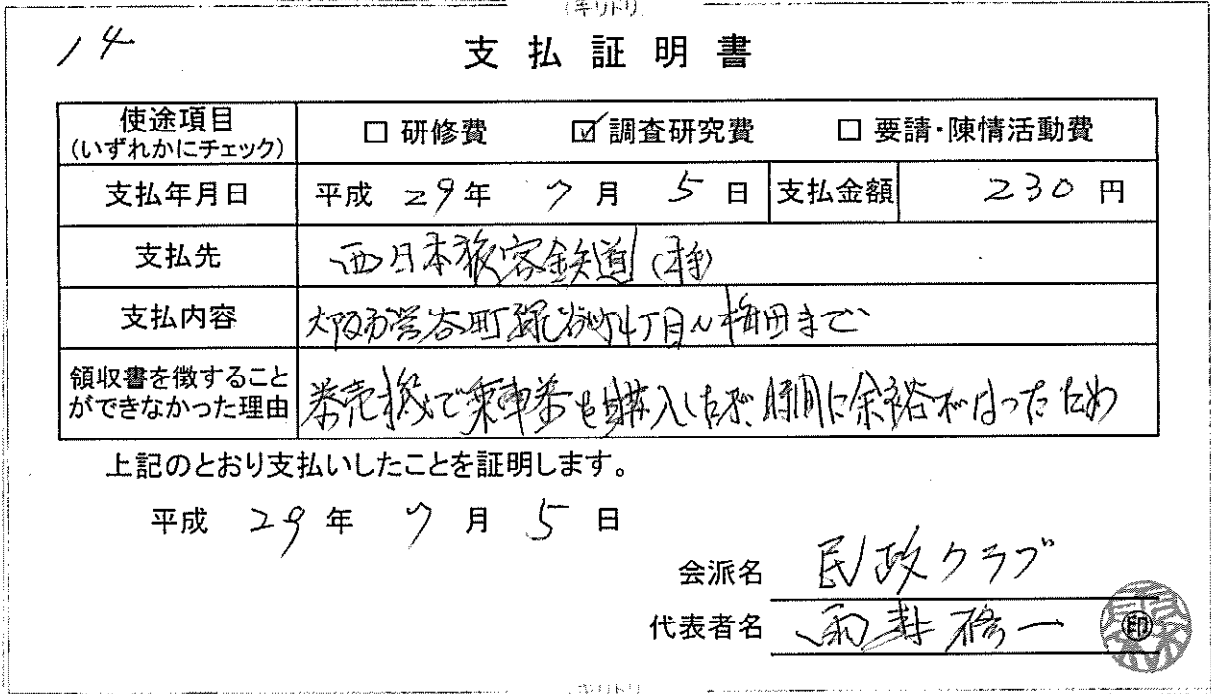 (キリトリ)
14
支払証明書
使途項目
(いずれかにチェック)
□ 研修費 ☑ 調査研究費 □ 要請・陳情活動費
支払年月日 平成 29年 7月 5日 支払金額 230円
支払先 西日本旅客鉄道(株)
支払内容 大阪市営谷町線谷町4丁目~梅田まで
領収書を徴すること
ができなかった理由
券売機で乗車券を購入したが、時間に余裕がなかったため
上記のとおり支払いしたことを証明します。
平成 29年 7月 5日
会派名 民政クラブ
代表者名 修一 印
(キリトリ)